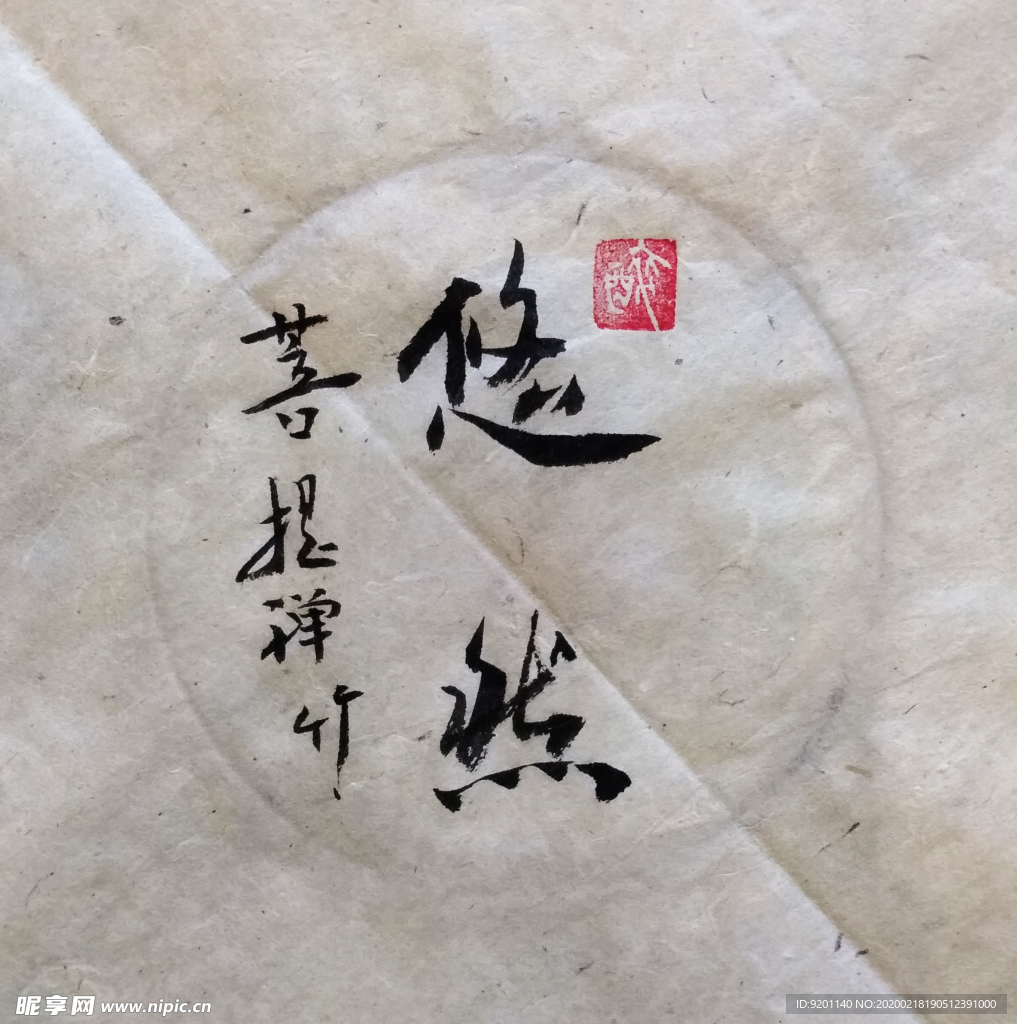 悠然
菩提禅竹
昵享网 www.nipic.cn
ID:9201140 NO:20200218190512391000